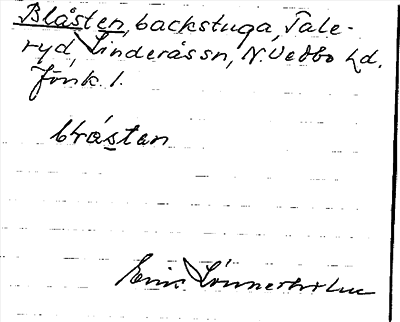 Blåsten, backstuga, Tale-
ryd, Linderås sn, N. Vedbo hd.
Jönk. l.
blå̀stən
Lönnerholm